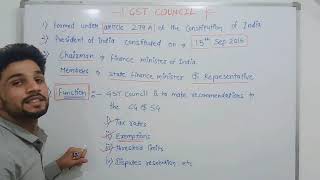 GST COUNCIL
1) Formed under article 279A of the constitution of India
2) President of India constituted on → 15th Sep 2016
3) Chairman → finance minister of India
Members → state finance minister & Representative
Function :- GST Council is to make recommendations to
the CG & SG
i) Tax rates
ii) Exemptions
iii) Threshold limits
iv) Disputes resolution etc